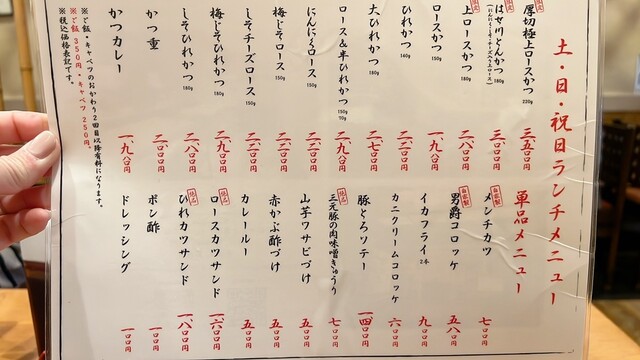 土・日・祝日ランチメニュー
厚切極上ロースかつ 220g 三、五〇〇円
はせ川とんかつ 180g 三、〇〇〇円
上ロースかつ 180g 二、八〇〇円
ロースかつ 150g 一、九八〇円
ひれかつ 160g
大ひれかつ 180g 二、七〇〇円
ロース&半ひれかつ 150g 70g 二、九八〇円
にんにくロース 150g
梅じそロース 150g
しそチーズロース 150g
梅じそひれかつ 180g 二、八〇〇円
しそひれかつ 180g 二、八〇〇円
かつ重 二、〇〇〇円
かつカレー 一、九八〇円
※ご飯・キャベツのおかわり2回目以降有料になります。
※ご飯 350円・キャベツ 250円。
※税込価格表記です。
単品メニュー
自家製 メンチカツ 七〇〇円
自家製 男爵コロッケ 五八〇円
イカフライ 2本 九〇〇円
カニクリームコロッケ 六〇〇円
豚とろソテー 一、四〇〇円
三元豚の肉味噌きゅうり 七〇〇円
山芋ワサビづけ 五〇〇円
赤かぶ酢づけ 五〇〇円
カレールー 五〇〇円
ロースカツサンド 一、六〇〇円
ひれカツサンド 一、八〇〇円
ポン酢 一〇〇円
ドレッシング 一〇〇円